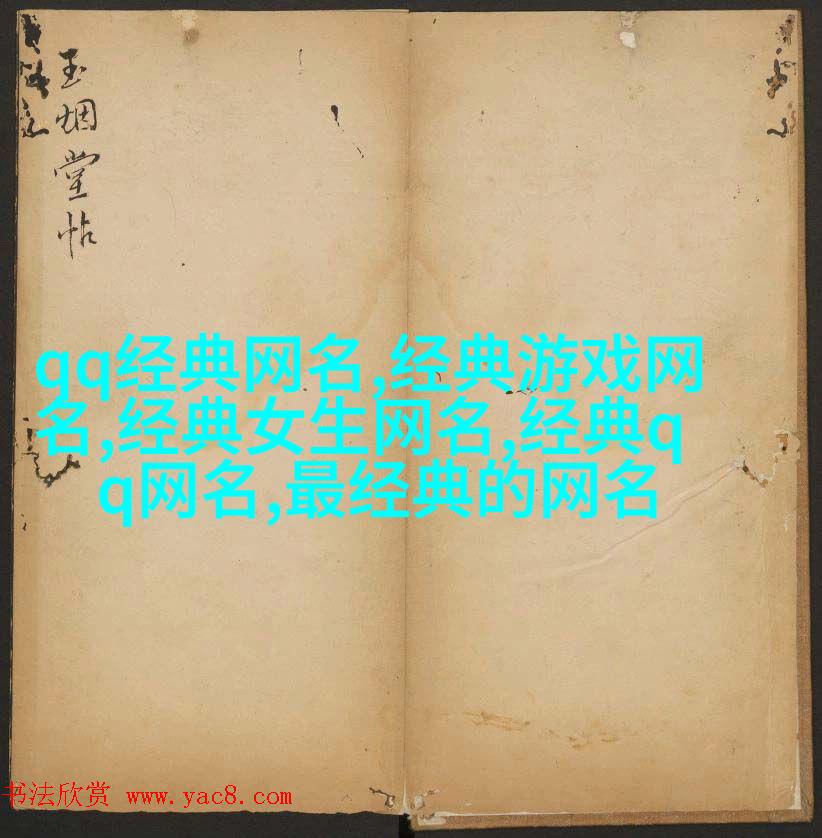 玉烟堂帖
qq经典网名,经典游戏网
名,经典女生网名,经典q
q网名,最经典的网名
书法欣赏 www.yac8.com